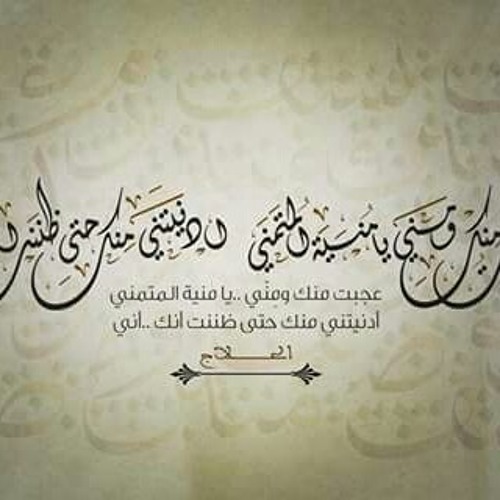 منك ومني يا منية المتمني ادنيتني منك حتى ظننت ا
عجبت منك ومنّي ..يا منية المتمني
ادنيتني منك حتى ظننت انك ..اني
الحلاج